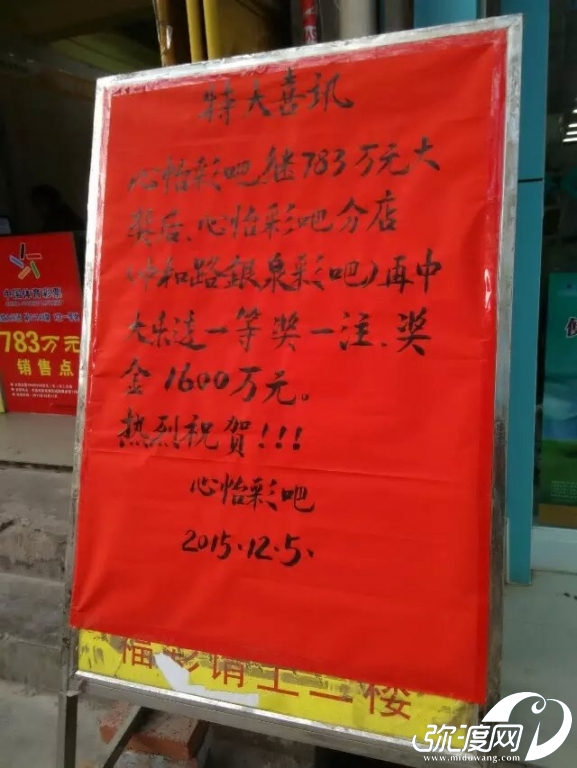 特大喜讯
心怡彩吧继783万元大
奖后、心怡彩吧分店
(冲和路銀泉彩吧)再中
大乐透一等奖一注、奖
金1600万元。
热烈祝贺!!!
心怡彩吧
2015.12.5、
中国体育彩票
783万元
销售点
福彩请上二楼
弥渡网
www.miduwang.com